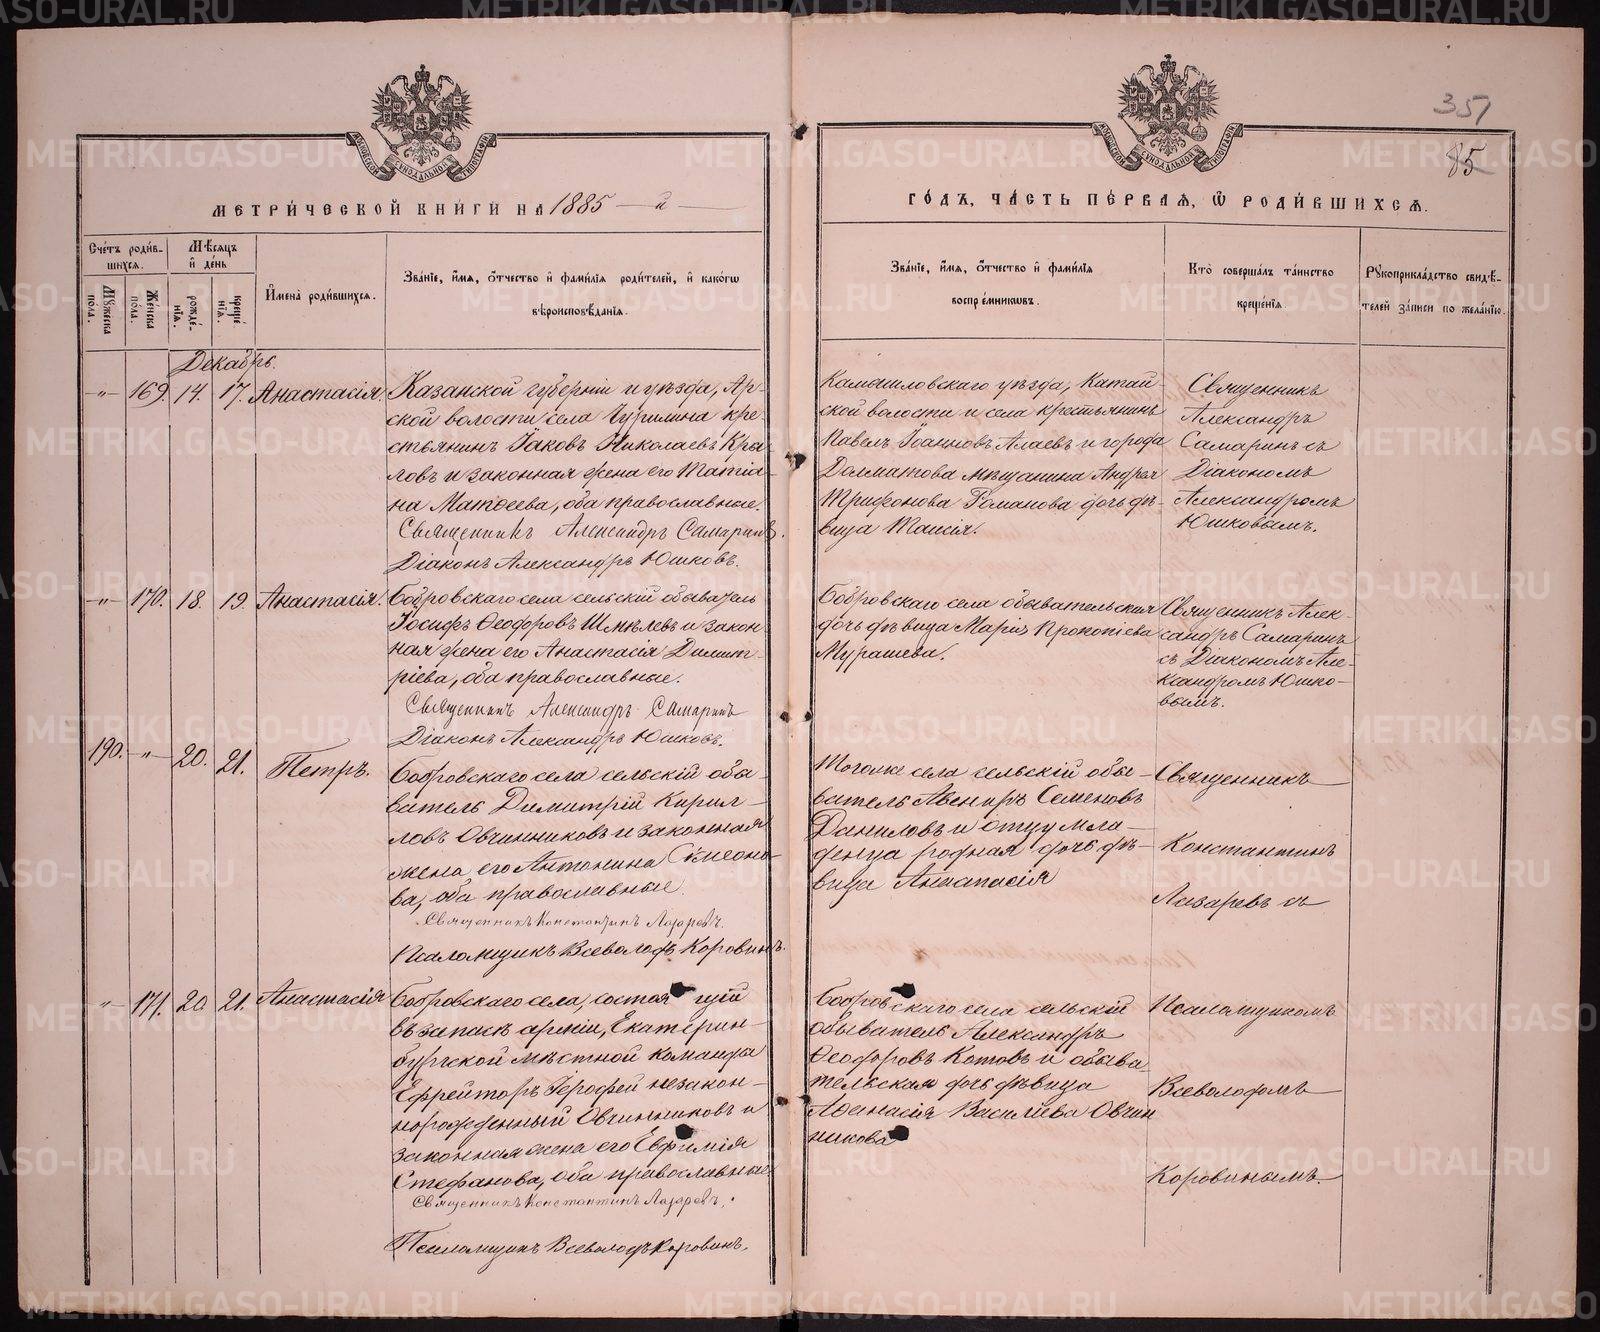 351
85
МЕТРИ́ЧЕСКОЙ КНИ́ГИ НА 1885 — й —
ГО́ДЪ, ЧА́СТЬ ПЕ́РВАѦ, Ѡ҆ РОДИ́ВШИХСѦ.
Сче́тъ роди́в-
шихсѧ.
Мꙋ́жеска по́ла.
Же́нска по́ла.
Мѣ́сѧцъ
и҆ де́нь
рожде́нїѧ.
креще́нїѧ.
И҆мена̀ роди́вшихсѧ.
Зва́нїе, и҆́мѧ, ѻ҆́тчество и҆ фами́лїѧ роди́телей, и҆ како́гѡ
вѣроисповѣ́данїѧ.
Зва́нїе, и҆́мѧ, ѻ҆́тчество и҆ фами́лїѧ
воспрїе́мникѡвъ.
Кто̀ соверша́лъ та́инство
креще́нїѧ.
Рꙋкоприкла́дство свидѣ́-
телей за́писи по жела́нїю.
Декабрь.
-„- 169. 14. 17. Анастасія.
Казанской губерніи и уѣзда, Ар-
ской волости села Чурилина кре-
стьянинъ Іаковъ Николаевъ Кры-
ловъ и законная жена его Татіа-
на Матѳеева, оба православные.
Священникъ Александръ Самаринъ.
Діаконъ Александръ Юшковъ.
Камышловскаго уѣзда, Катай-
ской волости и села крестьянинъ
Павелъ Іоанновъ Алаевъ и города
Долматова мѣщанина Андрея
Трифонова Романова дочь дѣ-
вица Таисія.
Священникъ
Александръ
Самаринъ съ
Діакономъ
Александромъ
Юшковымъ.
-„- 170. 18. 19. Анастасія.
Бобровскаго села сельскій обыватель
Іосифъ Ѳеодоровъ Шмѣлевъ и закон-
ная жена его Анастасія Димит-
ріева, оба православные.
Священникъ Александръ Самаринъ
Діаконъ Александръ Юшковъ.
Бобровскаго села обывательская
дочь дѣвица Марія Прокопіева
Мурашева.
Священникъ Алек-
сандръ Самаринъ
съ Діакономъ Але-
ксандромъ Юшко-
вымъ.
190. -„- 20. 21. Петръ.
Бобровскаго села сельскій обы-
ватель Димитрій Кирил-
ловъ Овчинниковъ и законная
жена его Антонина Сѵмеоно-
ва, оба православные.
Священникъ Константинъ Лазаревъ.
Псаломщикъ Всеволодъ Коровинъ.
Тогоже села сельскій обы-
ватель Авениръ Семеновъ
Даниловъ и отцу мла-
денца родная дочь дѣ-
вица Анастасія
Священникъ
Константинъ
Лазаревъ съ
-„- 171. 20. 21. Анастасія
Бобровскаго села, состоящій
въ запасѣ арміи, Екатерин-
бургской мѣстной команды
Ефрейторъ Іероѳей незакон-
норожденный Овчинниковъ и
законная жена его Евфимія
Стефанова, оба православные
Священникъ Константинъ Лазаревъ.
Псаломщикъ Всеволодъ Коровинъ.
Бобровскаго села сельскій
обыватель Александръ
Ѳеодоровъ Котовъ и обыва
тельская дочь дѣвица
Аѳанасія Василіева Овчин
никова
Псаломщикомъ
Всеволодомъ
Коровинымъ.